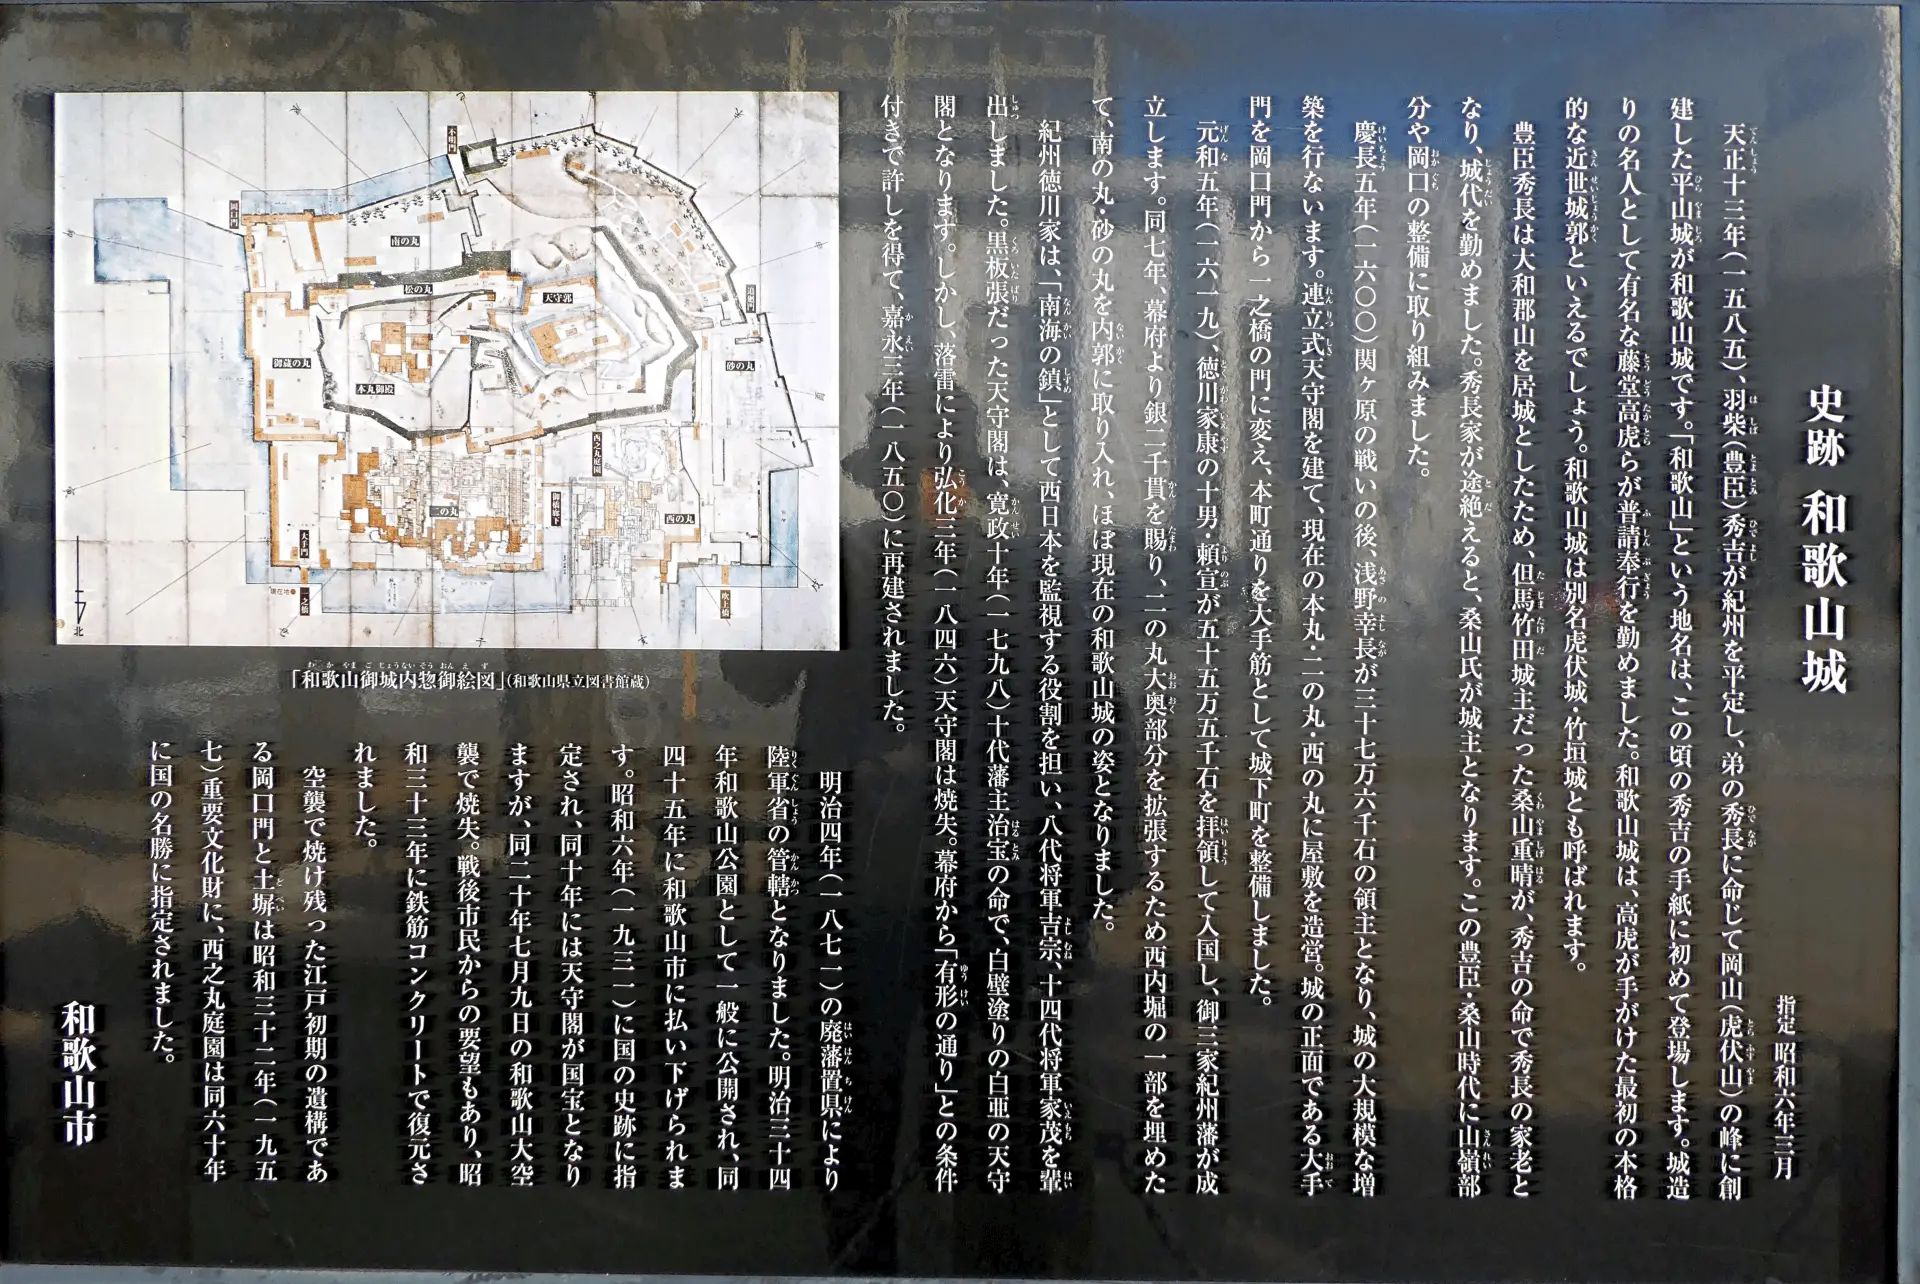 史跡 和歌山城
指定 昭和六年三月
天正十三年(一五八五)、羽柴(豊臣)秀吉が紀州を平定し、弟の秀長に命じて岡山(虎伏山)の峰に創
建した平山城が和歌山城です。「和歌山」という地名は、この頃の秀吉の手紙に初めて登場します。城造
りの名人として有名な藤堂高虎らが普請奉行を勤めました。和歌山城は、高虎が手がけた最初の本格
的な近世城郭といえるでしょう。和歌山城は別名虎伏城・竹垣城とも呼ばれます。
豊臣秀長は大和郡山を居城としたため、但馬竹田城主だった桑山重晴が、秀吉の命で秀長の家老と
なり、城代を勤めました。秀長家が途絶えると、桑山氏が城主となります。この豊臣・桑山時代に山嶺部
分や岡口の整備に取り組みました。
慶長五年(一六〇〇)関ヶ原の戦いの後、浅野幸長が三十七万六千石の領主となり、城の大規模な増
築を行ないます。連立式天守閣を建て、現在の本丸・二の丸・西の丸に屋敷を造営。城の正面である大手
門を岡口門から一之橋の門に変え、本町通りを大手筋として城下町を整備しました。
元和五年(一六一九)、徳川家康の十男・頼宣が五十五万五千石を拝領して入国し、御三家紀州藩が成
立します。同七年、幕府より銀二千貫を賜り、二の丸大奥部分を拡張するため西内堀の一部を埋めた
て、南の丸・砂の丸を内郭に取り入れ、ほぼ現在の和歌山城の姿となりました。
紀州徳川家は、「南海の鎮」として西日本を監視する役割を担い、八代将軍吉宗、十四代将軍家茂を輩
出しました。黒板張だった天守閣は、寛政十年(一七九八)十代藩主治宝の命で、白壁塗りの白亜の天守
閣となります。しかし、落雷により弘化三年(一八四六)天守閣は焼失。幕府から「有形の通り」との条件
付きで許しを得て、嘉永三年(一八五〇)に再建されました。
明治四年(一八七一)の廃藩置県により
陸軍省の管轄となりました。明治三十四
年和歌山公園として一般に公開され、同
四十五年に和歌山市に払い下げられま
す。昭和六年(一九三一)に国の史跡に指
定され、同十年には天守閣が国宝となり
ますが、同二十年七月九日の和歌山大空
襲で焼失。戦後市民からの要望もあり、昭
和三十三年に鉄筋コンクリートで復元さ
れました。
空襲で焼け残った江戸初期の遺構であ
る岡口門と土塀は昭和三十二年(一九五
七)重要文化財に、西之丸庭園は同六十年
に国の名勝に指定されました。
和歌山市
「和歌山御城内惣御絵図」(和歌山県立図書館蔵)
不明門
岡口門
南の丸
松の丸
天守郭
追廻門
御蔵の丸
本丸御殿
砂の丸
西之丸庭園
二の丸
御橋廊下
西の丸
大手門
現在地
一之橋
吹上橋
北